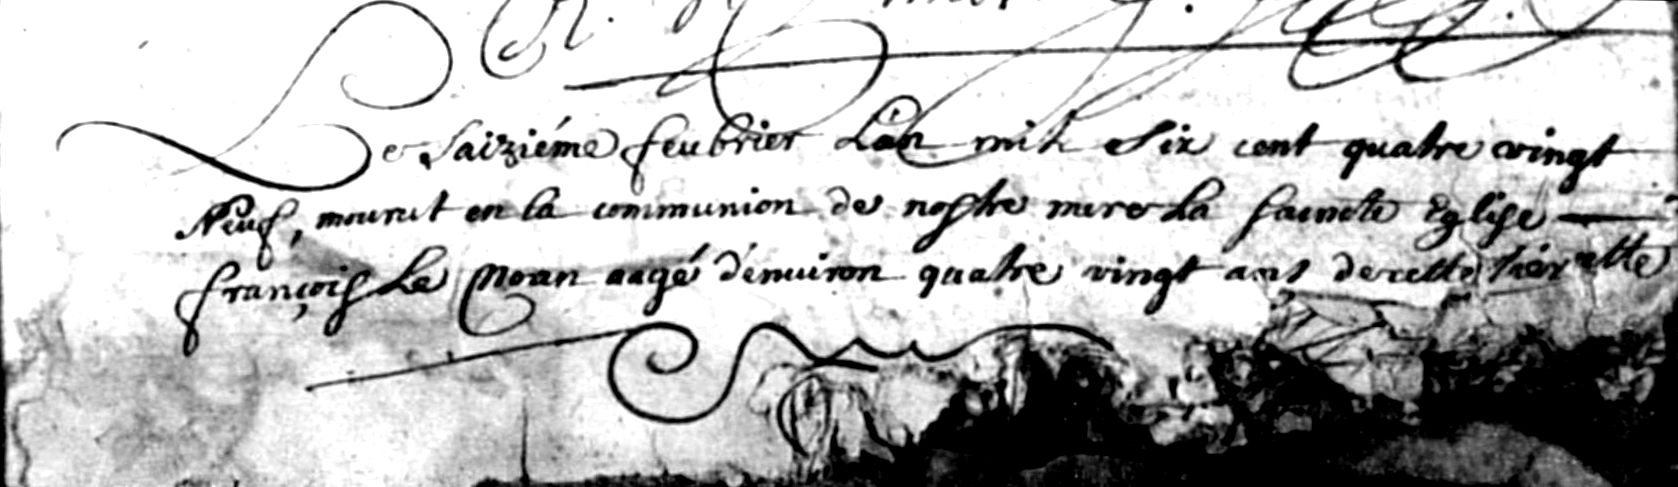 Le Saiziéme feubrier L'an mil Six cent quatre vingt
Neuf, mourut en la communion de nostre mere La saincte Eglise
françois Le Moran aagé d'enuiron quatre vingt ans